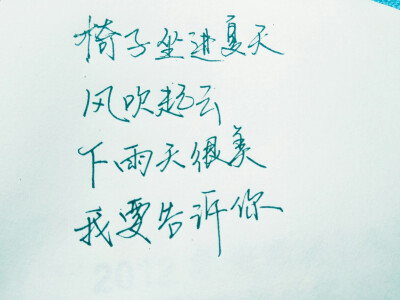 椅子坐进夏天
风吹起云
下雨天很美
我要告诉你